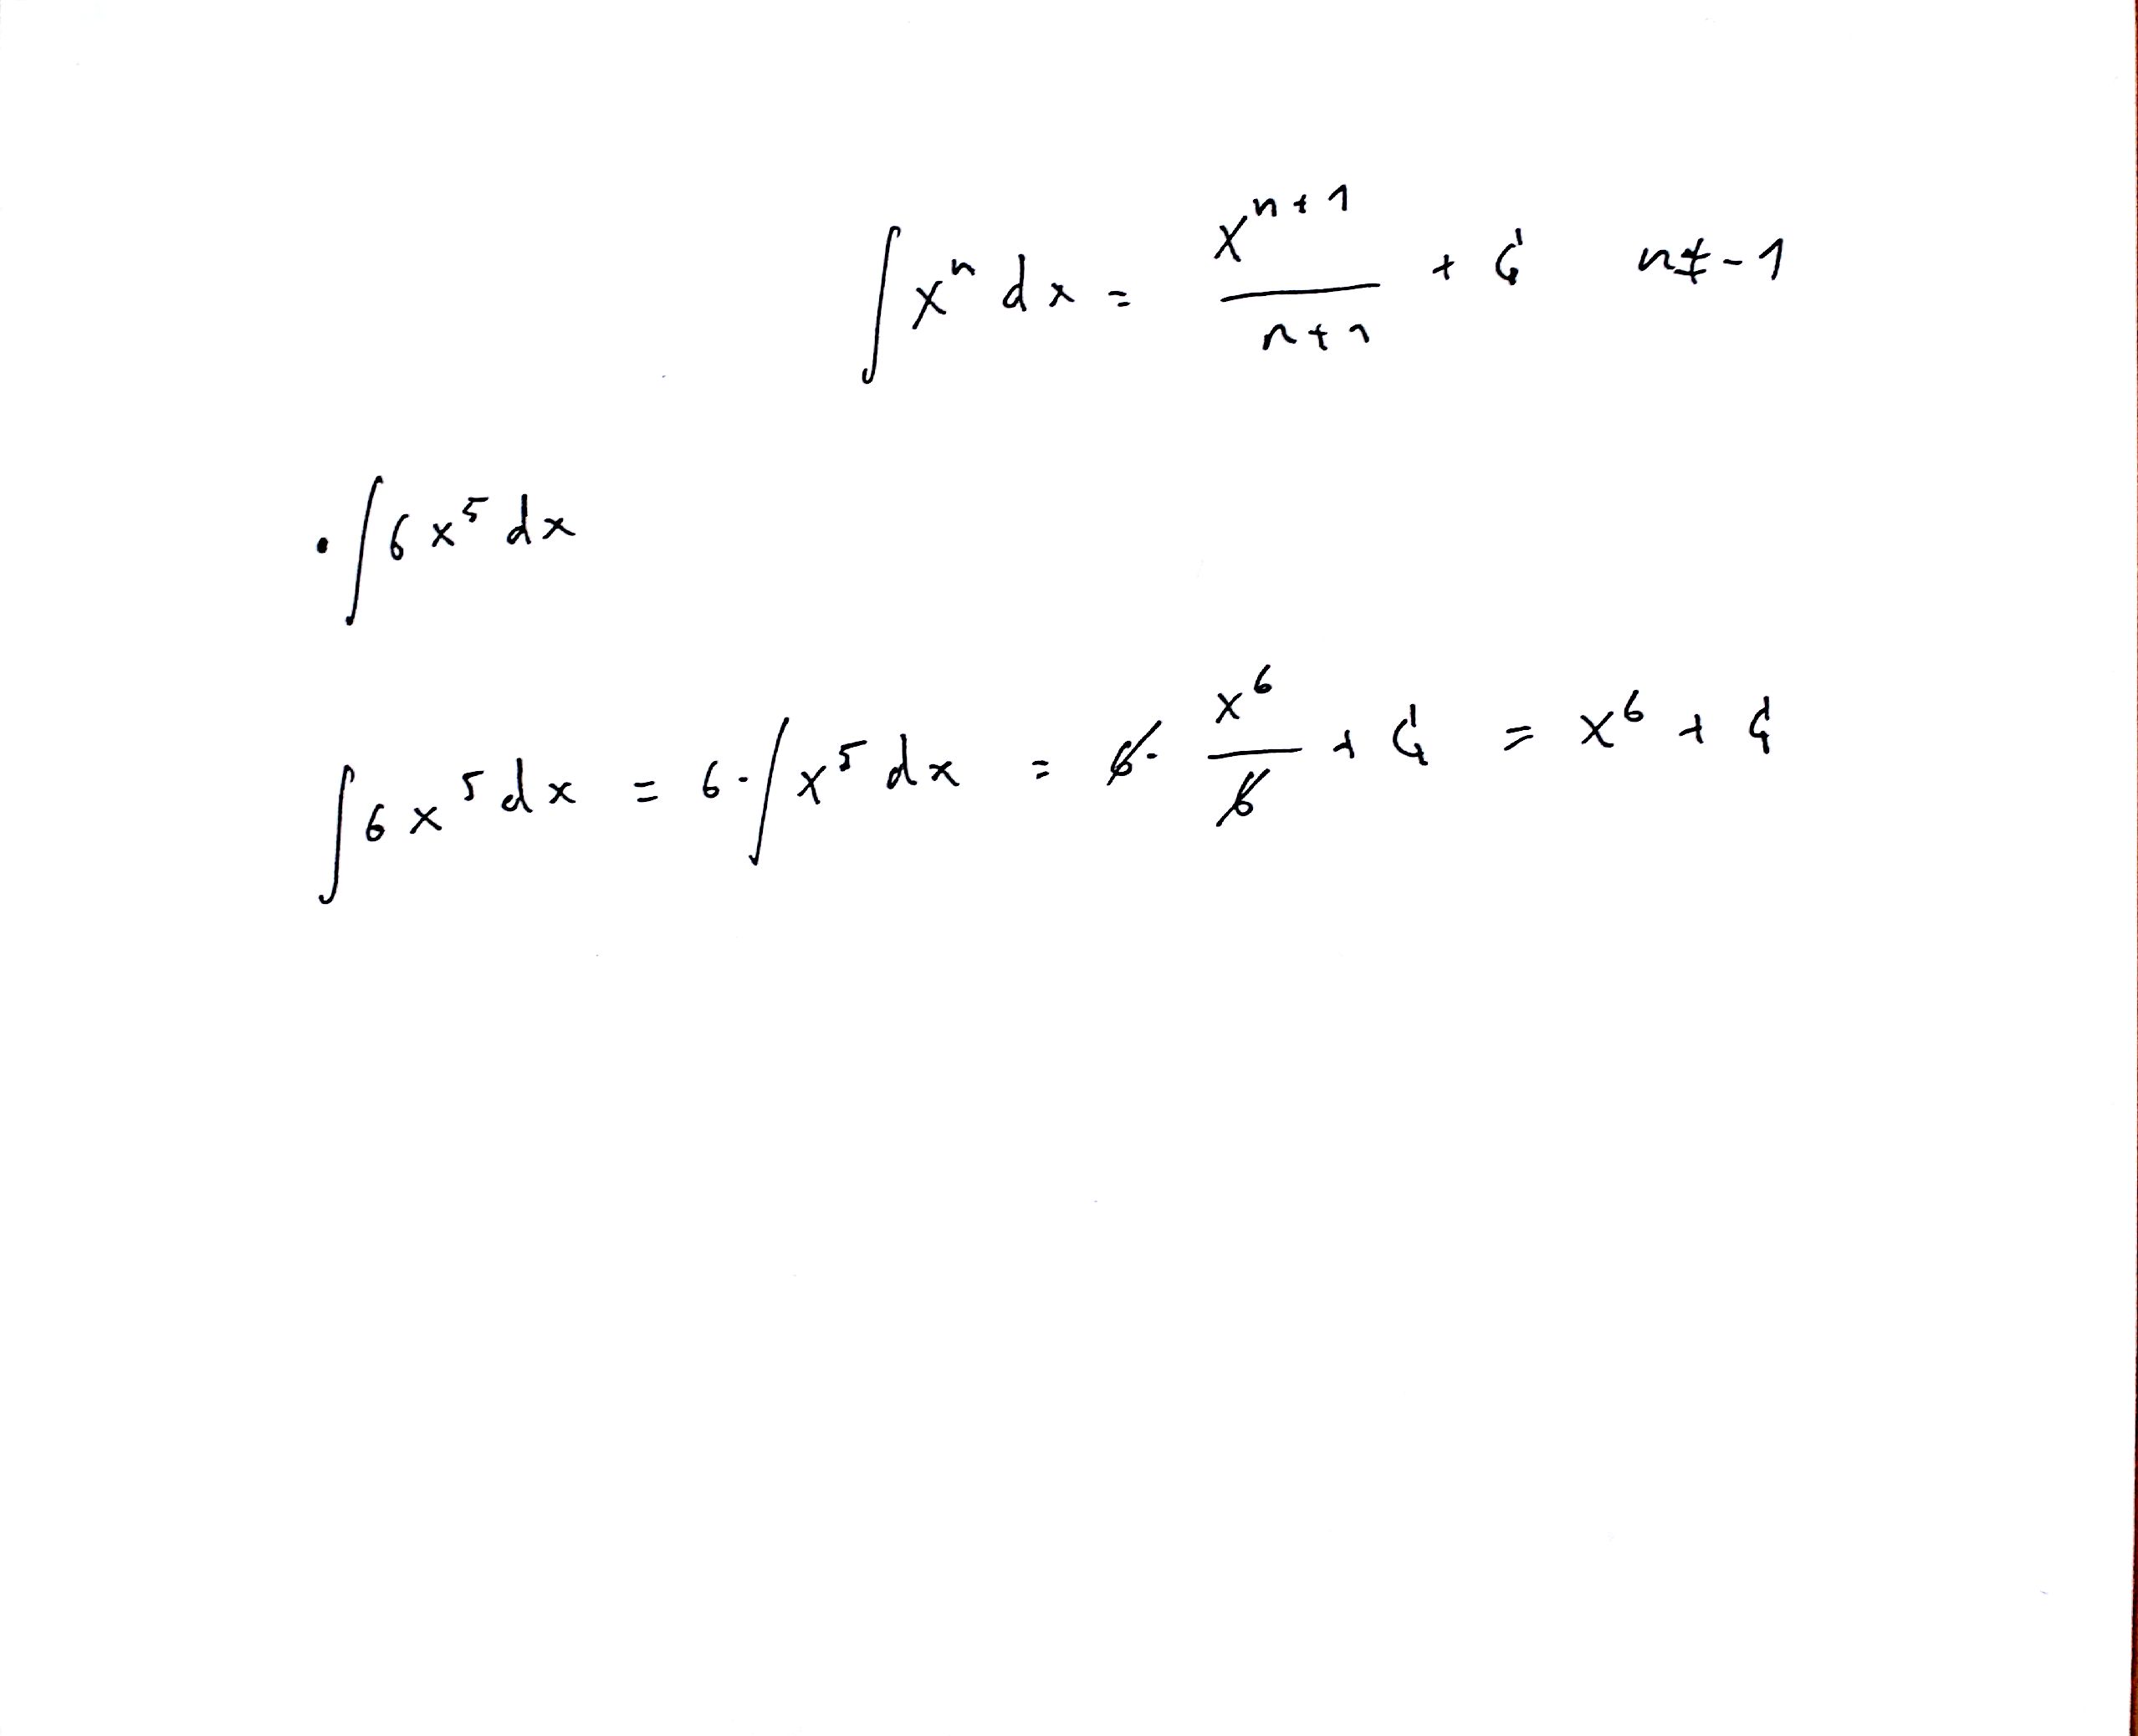 ∫ xⁿ dx = xⁿ⁺¹ / n+1 + C n ≠ -1
• ∫ 6x⁵ dx
∫ 6x⁵ dx = 6 · ∫ x⁵ dx = 6 · x⁶ / 6 + C = x⁶ + C